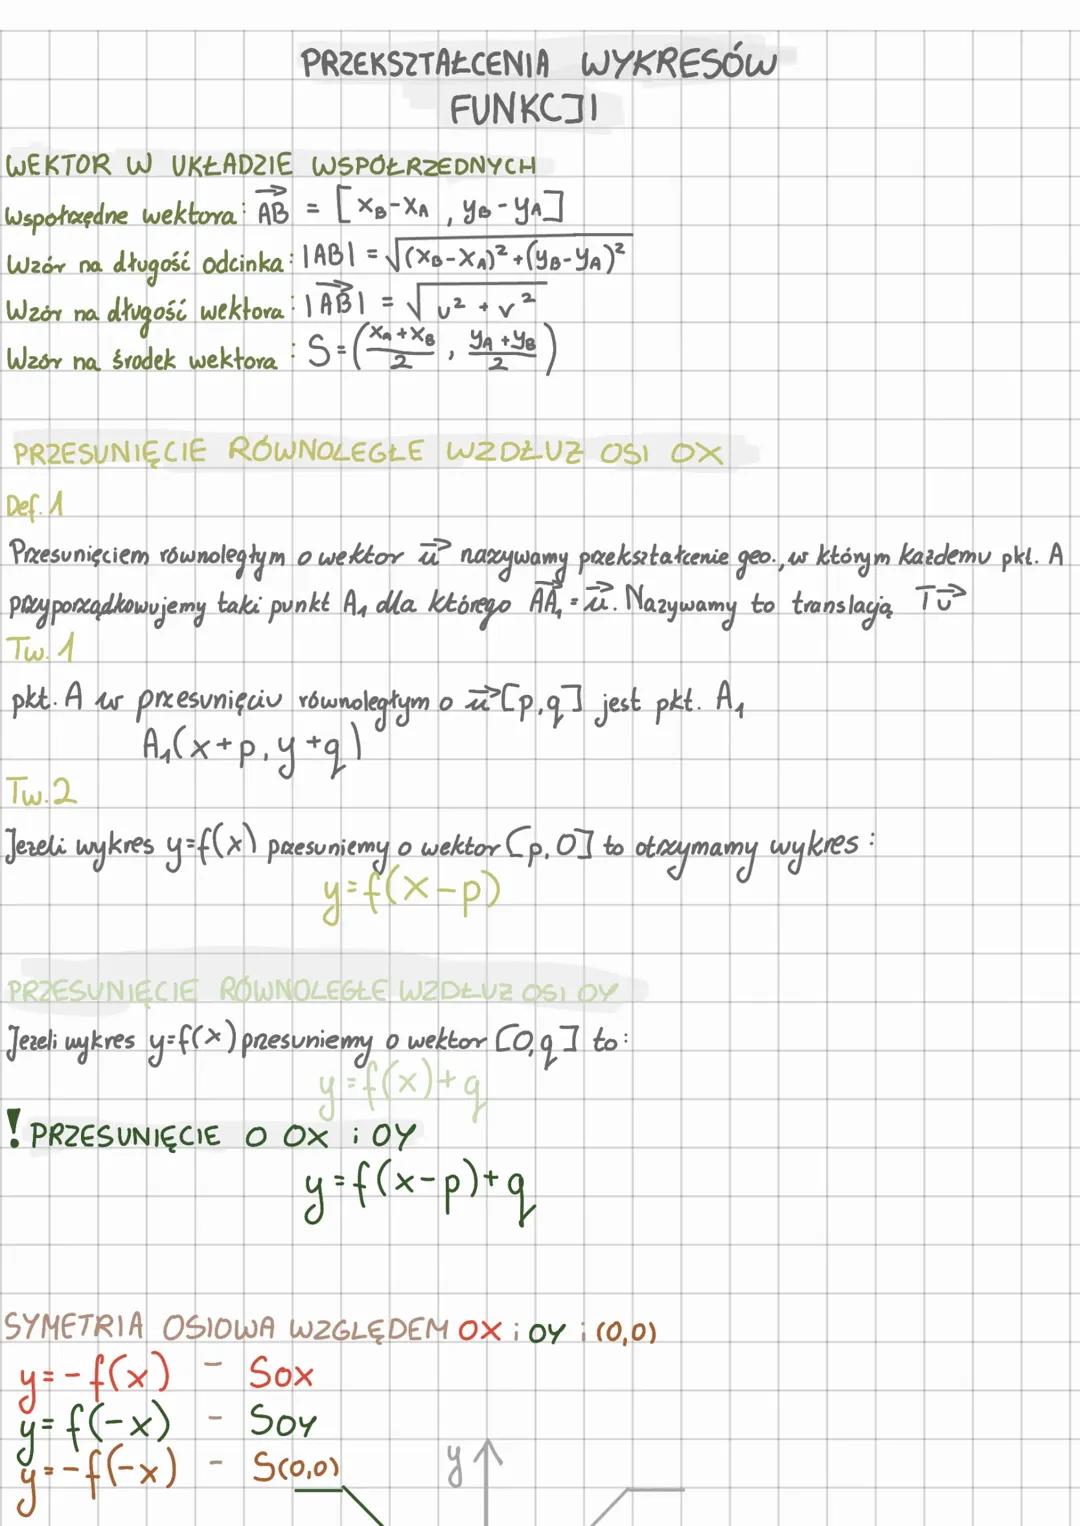 PRZEKSZTAŁCENIA WYKRESÓW
FUNKCJI
WEKTOR W UKŁADZIE WSPÓŁRZĘDNYCH
Współrzędne wektora: AB⃗ = [x_B-x_A , y_B-y_A]
Wzór na długość odcinka: |AB| = √((x_B-x_A)²+(y_B-y_A)²)
Wzór na długość wektora: |AB⃗| = √(u² + v²)
Wzór na środek wektora: S=((x_A+x_B)/2 , (y_A+y_B)/2)
PRZESUNIĘCIE RÓWNOLEGŁE WZDŁUŻ OSI OX
Def. 1
Przesunięciem równoległym o wektor u⃗ nazywamy przekształcenie geo., w którym każdemu pkt. A
przyporządkowujemy taki punkt A₁ dla którego AA₁⃗ = u⃗. Nazywamy to translacją Tu⃗
Tw. 1
pkt. A w przesunięciu równoległym o u⃗[p,q] jest pkt. A₁
A₁(x+p, y+q)
Tw.2
Jeżeli wykres y=f(x) przesuniemy o wektor [p,0] to otrzymamy wykres:
y=f(x-p)
PRZESUNIĘCIE RÓWNOLEGŁE WZDŁUŻ OSI OY
Jeżeli wykres y=f(x) przesuniemy o wektor [0,q] to:
y=f(x)+q
! PRZESUNIĘCIE O OX i OY
y=f(x-p)+q
SYMETRIA OSIOWA WZGLĘDEM OX i OY i (0,0)
y=-f(x) - SOX
y=f(-x) - SOY
y=-f(-x) - S(0,0)
y